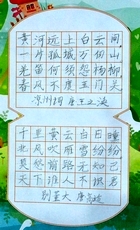 黄河远上白云间
一片孤城万仞山
羌笛何须怨杨柳
春风不度玉门关
凉州词 唐王之涣
千里黄云白日曛
北风吹雁雪纷纷
莫愁前路无知己
天下谁人不识君
别董大 唐高适